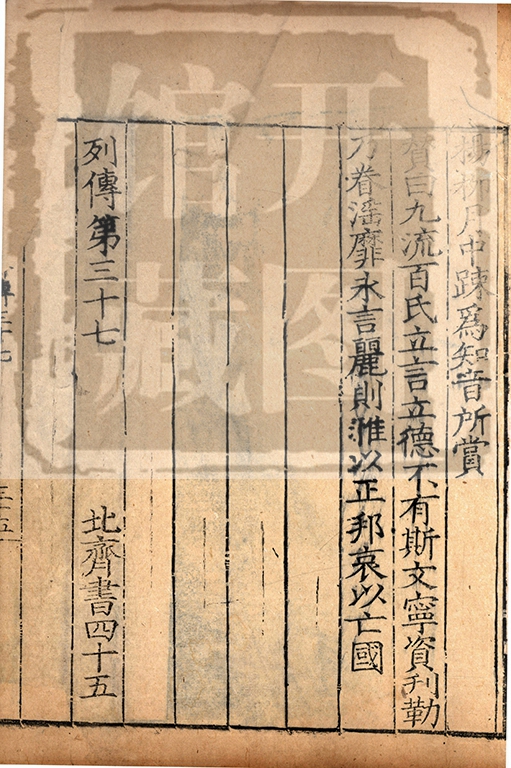 楊柳月中踈為知音所賞
贊曰九流百氏立言立德不有斯文寧資刋勒
乃眷滛靡永言麗則雅以正邦哀以亡國
列傳第三十七
北齊書四十五
三十五
開圖
館藏